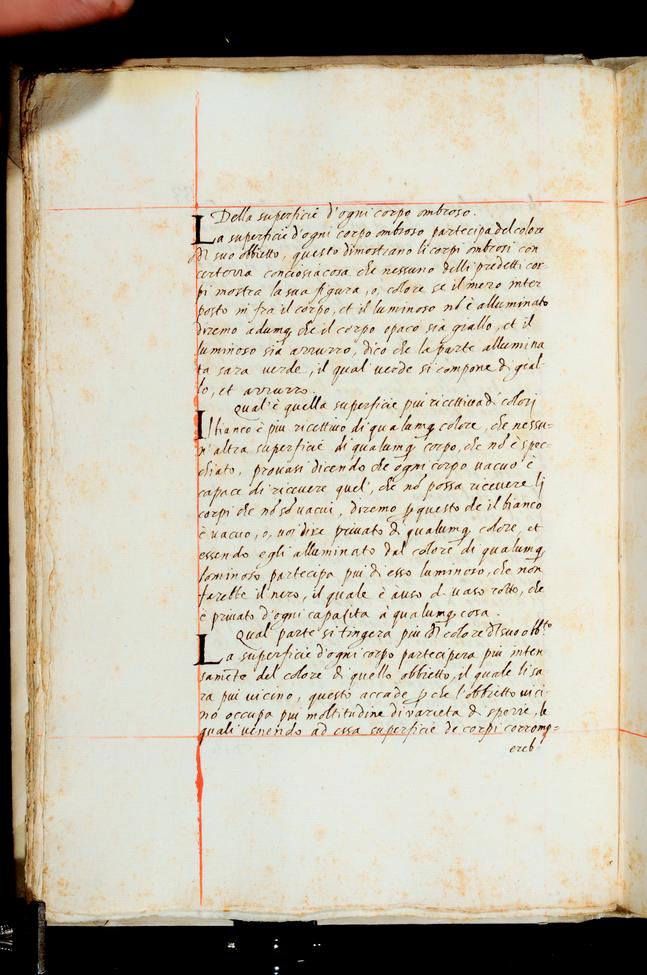 Della superficie d'ogni corpo ombroso.
La superficie d'ogni corpo ombroso partecipa del colore
dl suo obbietto, questo dimostrano li corpi ombrosi con
certezza conciosiacosa che nessuno delli predetti cor-
pi mostra la sua figura, o, colore se il mezo inter
posto in fra il corpo, et il luminoso nō è alluminato
diremo adunq; che il corpo opaco sia giallo, et il
luminoso sia azzurro, dico che la parte allumina
ta sara verde, il qual verde si compone di gial-
lo, et azzurro.
Qual'è quella superficie piu ricettiva di colori
Il bianco è piu ricettivo di qualunq; colore, che nessu-
n'altra superficie di qualunq; corpo, che nō è spec-
chiato, provasi dicendo che ogni corpo vacuo è
capace di ricevere quel', che nō possa ricevere li
corpi che nō sō vacui, diremo p questo che il bianco
è vacuo, o, voi dire privato di qualunq; colore, et
essendo egli alluminato dal colore di qualunq;
luminoso partecipa piu di esso luminoso, che non
farebbe il nero, il quale è à uso d. vaso rotto, che
è privato d'ogni capacita à qualunq; cosa.
Qual parte si tingera piu dl colore dl suo obb.to
La superficie d'ogni corpo partecipera piu inten
samēte del colore di quello obbietto, il quale li sa
ra piu vicino, questo accade p che l'obbietto vici-
no occupa piu moltitudine di varieta di spezie, le
quali venendo ad essa superficie de corpi corromp=
ereb